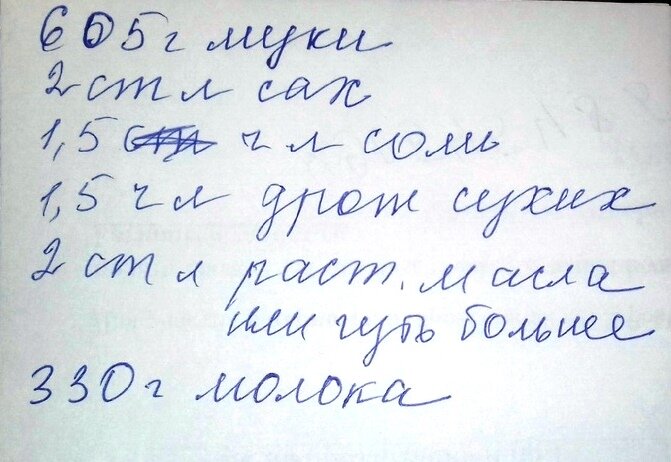 605г муки
2 ст л сах
1,5 ч л соли
1,5 ч л дрож сухих
2 ст л раст. масла
или чуть больше
330 г молока